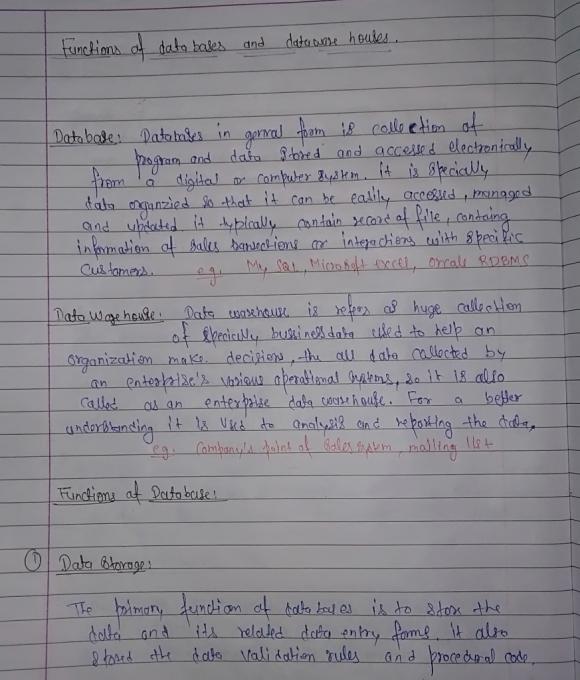 Functions of databases and dataware houses.
Database: Databases in genral form is collection of
program and data stored and accessed electronically
from a digital or computer system. it is specially
data organzied so that it can be easily accessed, managed
and updated it typically contain record of file, containg
information of sales transections or interactions with specific
Customers. eg. My Sql, Microsoft excel, orcale RDBMS
Data Warehouse: Data warehouse is refers as huge collection
of specically bussiness data used to help an
organization make decisions, the all data collected by
an enterprise's various operational systems, so it is also
called as an enterprise data warehouse. For a better
understanding it is used to analysis and reporting the data.
eg. Company's point of sales system, mailling list
Functions of Database:
① Data Storage:
The primary function of databases is to store the
data and its related data entry forms. it also
stored the data validation rules and procedural code.